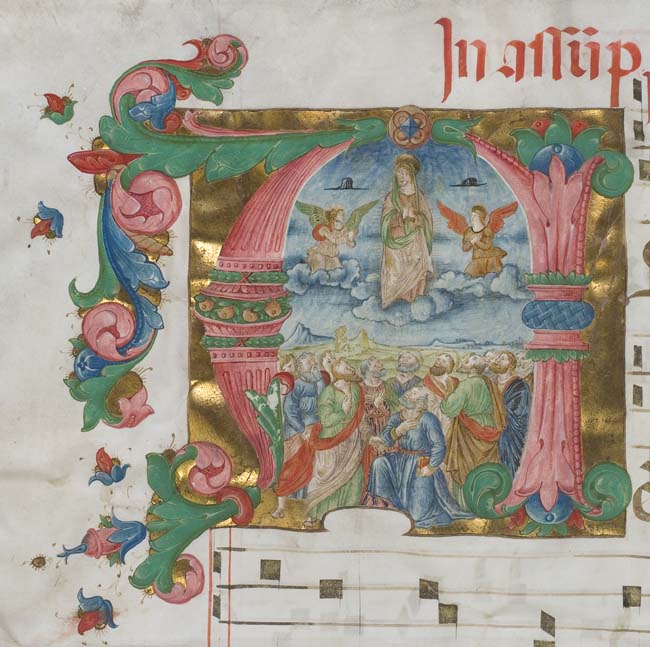 In assūp